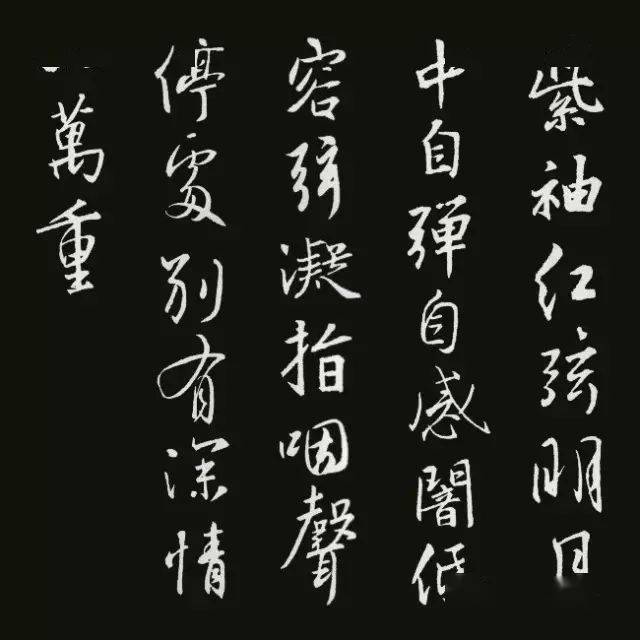 紫袖红弦明月
中自弹自感闇低
容弦凝指咽聲
停處别有深情
萬重